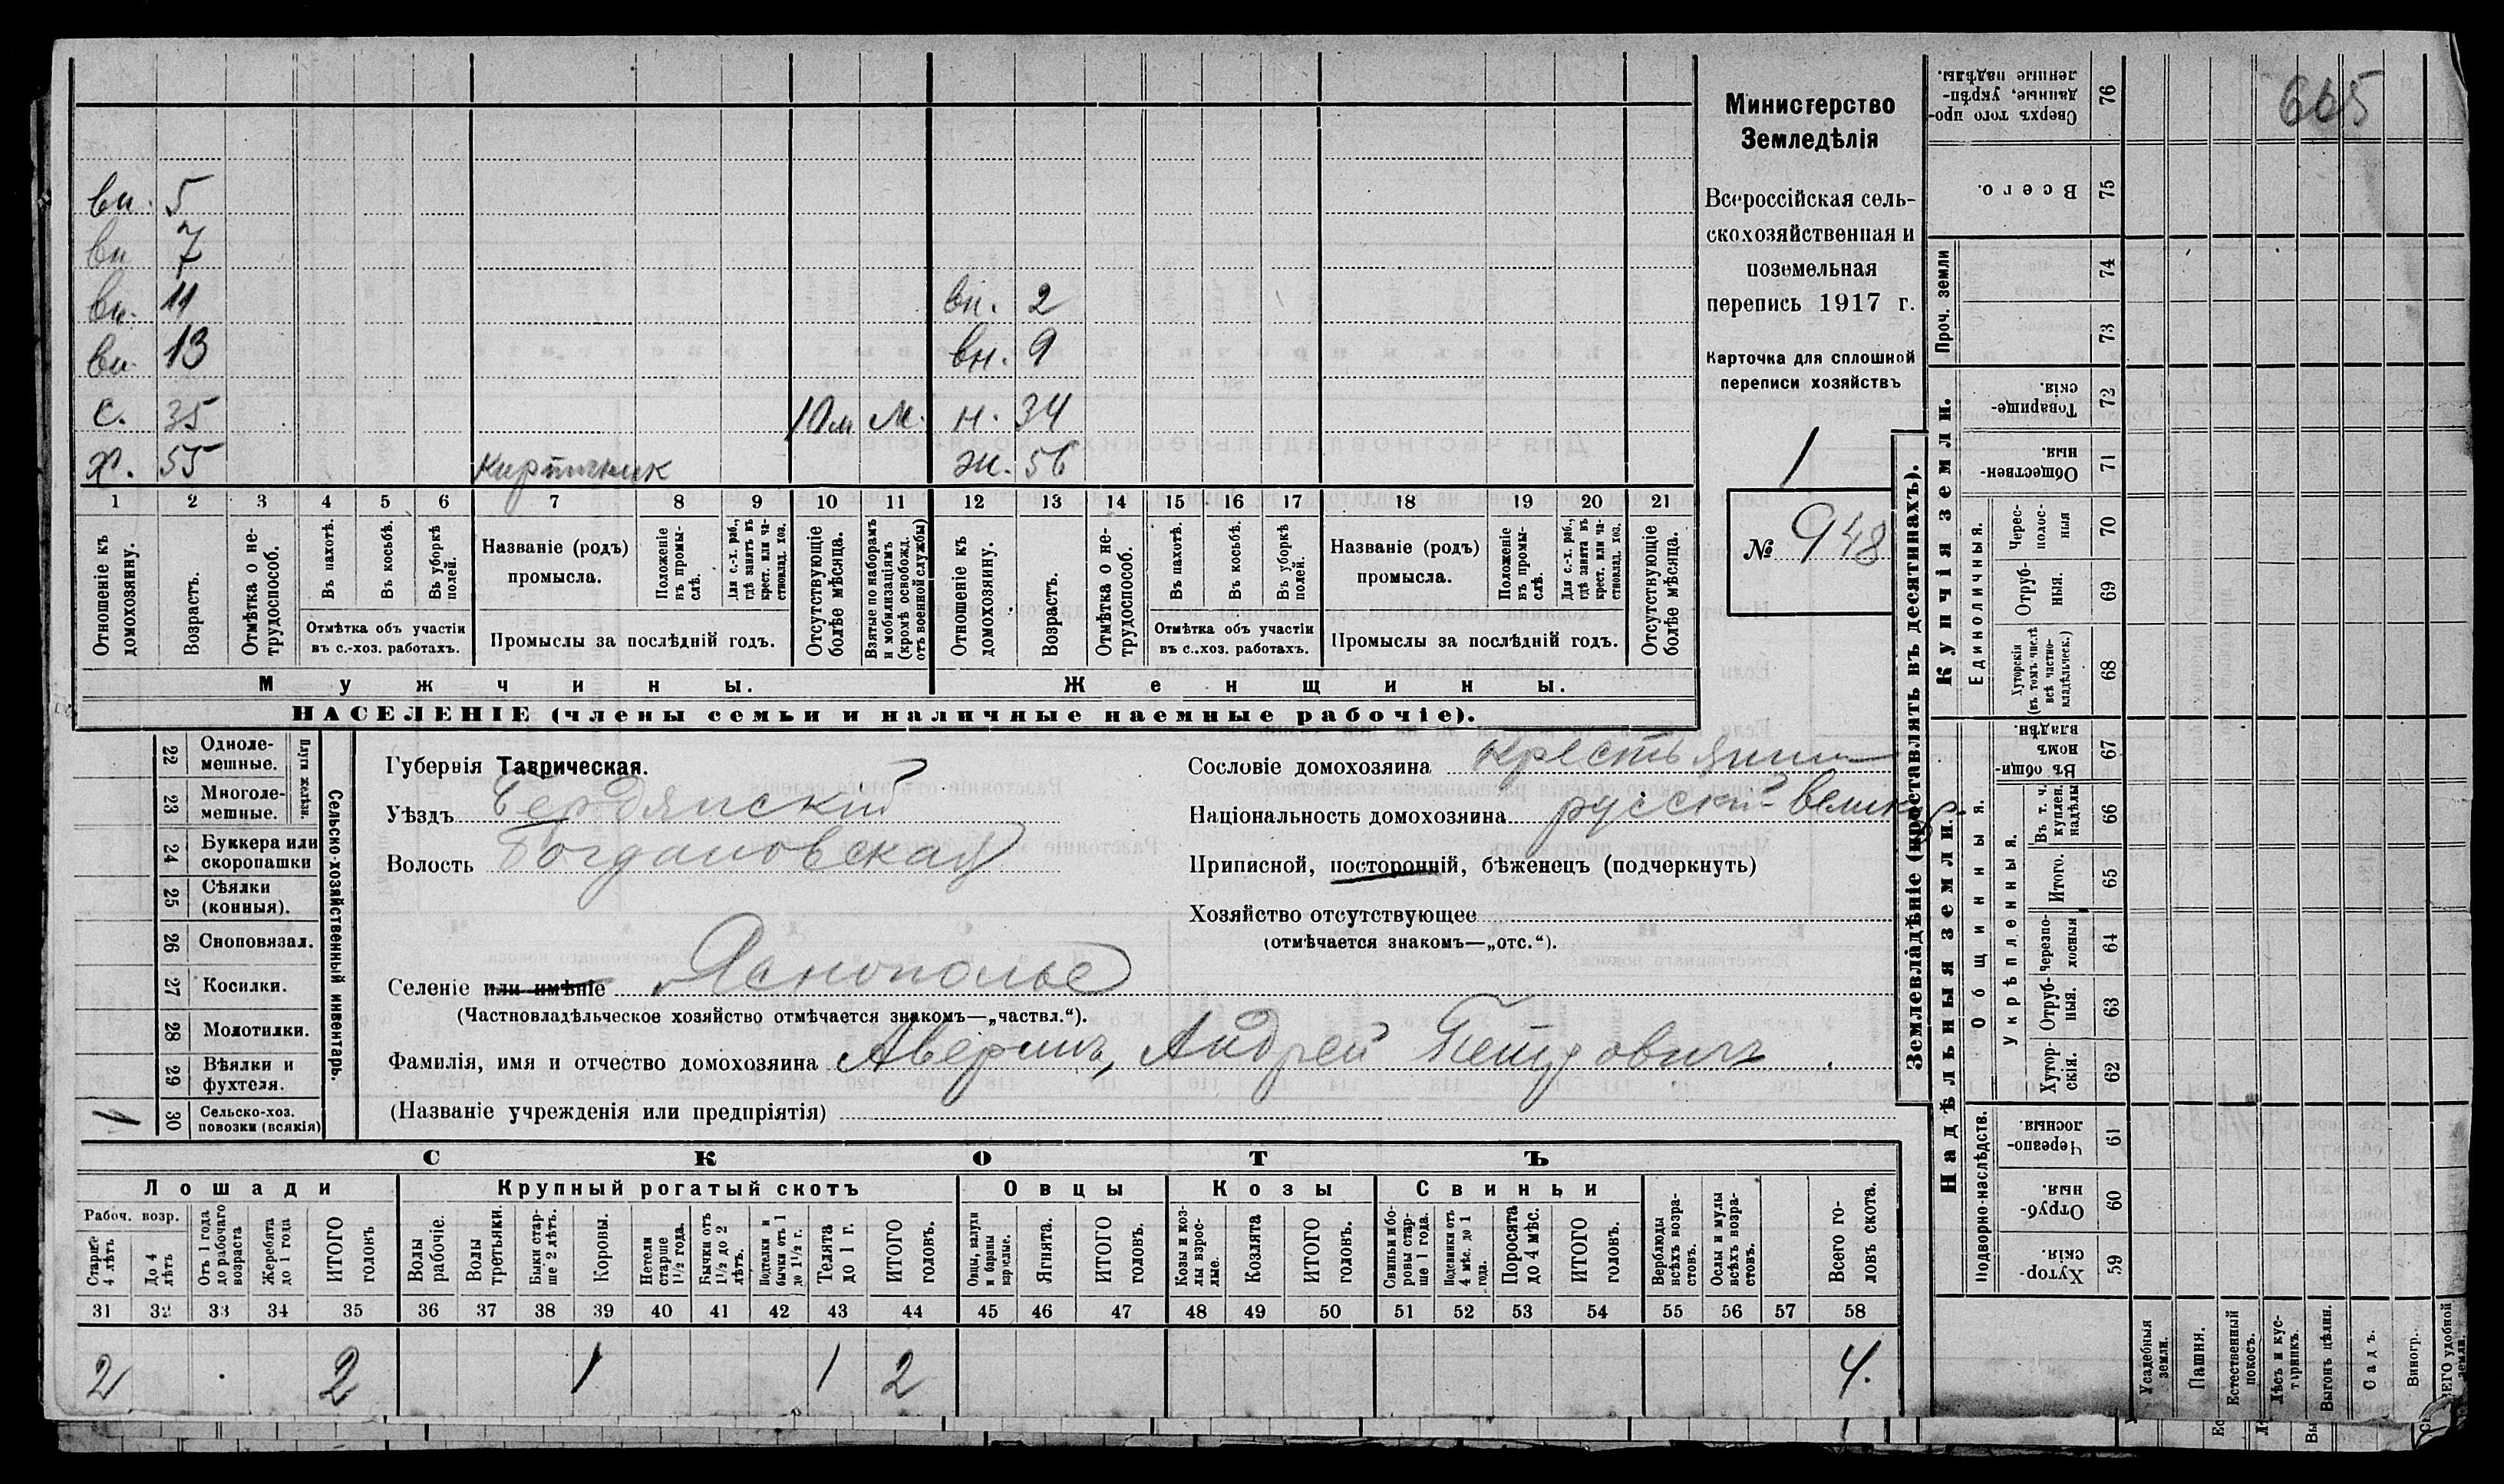 вн. 5
вн 7
вн. 11 вн. 2
вн. 13 вн. 9
с. 35 10 м м. н. 34
х. 55 кирпичник ж. 56
1 2 3 4 5 6 7 8 9 10 11 12 13 14 15 16 17 18 19 20 21
Отношеніе къ домохозяину.
Возрастъ.
Отмѣтка о не-трудоспособ.
Въ пахотѣ.
Въ косьбѣ.
Въ уборкѣ полей.
Отмѣтка объ участіи
въ с.-хоз. работахъ.
Названіе (родъ)
промысла.
Положеніе въ промы-слѣ.
Для с.-х. раб., гдѣ занятъ въ крест. или ча-стновлад. хоз.
Промыслы за послѣдній годъ.
Отсутствующіе болѣе мѣсяца.
Взятые по наборамъ и мобилизаціямъ (кромѣ освобожд. отъ военной службы)
Отношеніе къ домохозяину.
Возрастъ.
Отмѣтка о не-трудоспособ.
Въ пахотѣ.
Въ косьбѣ.
Въ уборкѣ полей.
Отмѣтка объ участіи
въ с..хоз. работахъ.
Названіе (родъ)
промысла.
Положеніе въ промы-слѣ.
Для с.-х. раб., гдѣ занята въ крест. или ча-стновлад. хоз.
Промыслы за послѣдній годъ.
Отсутствующіе болѣе мѣсяца.
Мужчины. Женщины.
НАСЕЛЕНІЕ (члены семьи и наличные наемные рабочіе).
Министерство
Земледѣлія
Всероссійская сель-
скохозяйственная и
поземельная
перепись 1917 г.
Карточка для сплошной
переписи хозяйствъ
1
№ 948
22 Одноле-мешные.
23 Многоле-мешные.
Плуги желѣзн.
24 Буккера или скоропашки
25 Сѣялки (конныя).
26 Сноповязал.
27 Косилки.
28 Молотилки.
29 Вѣялки и фухтеля.
1 30 Сельско-хоз. повозки (всякія)
Сельско-хозяйственный инвентарь.
Губернія Таврическая.
Уѣздъ Бердянскій
Волость Богдановская
Сословіе домохозяина крестьянин
Національность домохозяина русскій-велик
Приписной, посторонній, бѣженецъ (подчеркнуть)
Хозяйство отсутствующее
(отмѣчается знакомъ—„отс.“).
Селеніе или имѣніе Яснополье
(Частновладѣльческое хозяйство отмѣчается знакомъ—„частвл.“).
Фамилія, имя и отчество домохозяина Аверинъ, Андрей Петрович
(Названіе учрежденія или предпріятія)
СКОТЪ
Лошади Крупный рогатый скотъ Овцы Козы Свиньи
Рабоч. возр.
Старше 4 лѣтъ
До 4 лѣтъ
Отъ 1 года до рабочаго возраста
Жеребята до 1 года
ИТОГО головъ
Волы рабочіе.
Волы третьяки.
Быки стар-ше 2 лѣтъ.
Коровы.
Нетели старше 1½ года.
Бычки отъ 1½ до 2 лѣтъ.
Подтелки и бычки отъ 1 до 1½ г.
Телята до 1 г.
ИТОГО головъ.
Овцы, валухи и бараны взрослые.
Ягнята.
ИТОГО головъ.
Козы и коз-лы взрос-лые.
Козлята
ИТОГО головъ.
Свиньи и бо-ровы стар-ше 1 года.
Подсвинки отъ 4 мѣс. до 1 года.
Поросята до 4 мѣс.
ИТОГО головъ.
Верблюды всѣхъ возра-стовъ.
Ослы и мулы всѣхъ возра-стовъ.
Всего го-ловъ скота.
31 32 33 34 35 36 37 38 39 40 41 42 43 44 45 46 47 48 49 50 51 52 53 54 55 56 57 58
2 2 1 1 2 4.
665
Землевладѣніе (проставлять въ десятинахъ).
Купчія земли.
Надѣльныя земли.
Проч. земли
Сверхъ того про-данные, укрѣп-ленные надѣлы. 76
Всего. 75
74
73
Товарище-скія. 72
Обществен-ныя. 71
Единоличныя.
Черес-полос-ныя 70
Отруб-ныя. 69
Хуторскія (въ томъ числѣ всѣ частно-владѣльческ.) 68
Общинныя.
Въ общи-номъ владѣн. 67
Укрѣпленныя.
Въ т. ч. куплен. надѣлы 66
Итого. 65
Черезпо-лосныя 64
Отруб-ныя. 63
Хутор-скія. 62
Подворно-наслѣдств.
Черезпо-лосныя. 61
Отруб-ныя. 60
Хутор-скія. 59
Усадебныя земли.
Пашня.
Естественный покосъ.
Лѣсъ и кус-тарникъ.
Выгонъ цѣлин.
Садъ.
Виногр.
ВСЕГО удобной земли.